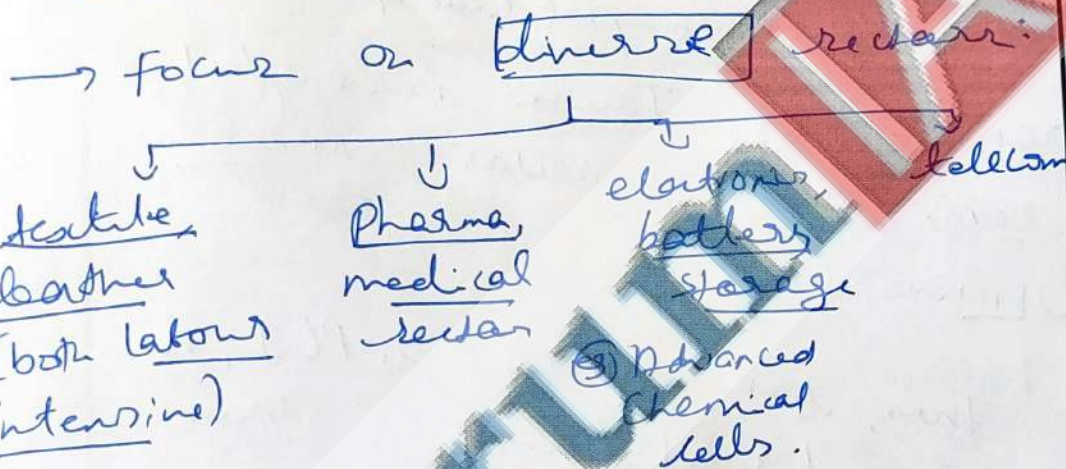 → focus on diverse sectors.
textile,
leather
(both labour
intensive)
Pharma,
medical
sector
electronics,
battery
storage
eg Advanced
Chemical
cells.
telecom